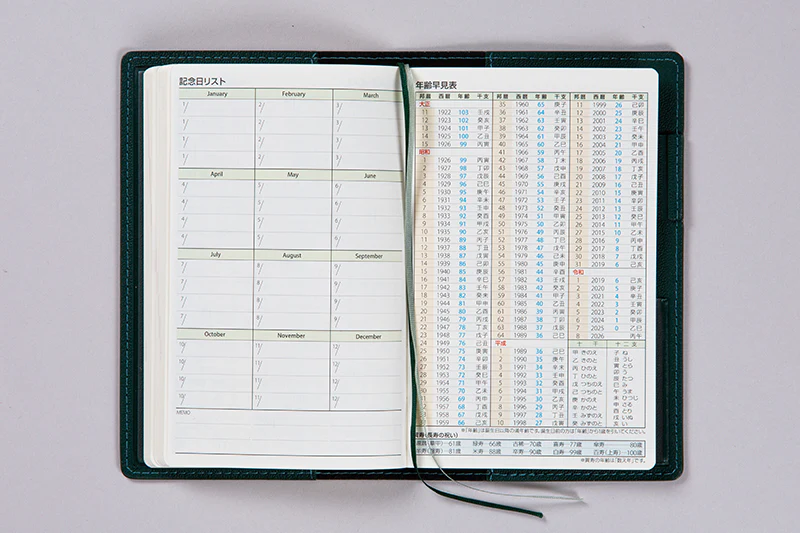 記念日リスト
January February March
1/ 2/ 3/
1/ 2/ 3/
1/ 2/ 3/
1/ 2/ 3/
April May June
4/ 5/ 6/
4/ 5/ 6/
4/ 5/ 6/
4/ 5/ 6/
July August September
7/ 8/ 9/
7/ 8/ 9/
7/ 8/ 9/
7/ 8/ 9/
October November December
10/ 11/ 12/
10/ 11/ 12/
10/ 11/ 12/
10/ 11/ 12/
MEMO
年齢早見表
邦暦 西暦 年齢 干支
大正
11 1922 103 壬戌
12 1923 102 癸亥
13 1924 101 甲子
14 1925 100 乙丑
15 1926 99 丙寅
昭和
1 1926 99 丙寅
2 1927 98 丁卯
3 1928 97 戊辰
4 1929 96 己巳
5 1930 95 庚午
6 1931 94 辛未
7 1932 93 壬申
8 1933 92 癸酉
9 1934 91 甲戌
10 1935 90 乙亥
11 1936 89 丙子
12 1937 88 丁丑
13 1938 87 戊寅
14 1939 86 己卯
15 1940 85 庚辰
16 1941 84 辛巳
17 1942 83 壬午
18 1943 82 癸未
19 1944 81 甲申
20 1945 80 乙酉
21 1946 79 丙戌
22 1947 78 丁亥
23 1948 77 戊子
24 1949 76 己丑
25 1950 75 庚寅
26 1951 74 辛卯
27 1952 73 壬辰
28 1953 72 癸巳
29 1954 71 甲午
30 1955 70 乙未
31 1956 69 丙申
32 1957 68 丁酉
33 1958 67 戊戌
34 1959 66 己亥
邦暦 西暦 年齢 干支
35 1960 65 庚子
36 1961 64 辛丑
37 1962 63 壬寅
38 1963 62 癸卯
39 1964 61 甲辰
40 1965 60 乙巳
41 1966 59 丙午
42 1967 58 丁未
43 1968 57 戊申
44 1969 56 己酉
45 1970 55 庚戌
46 1971 54 辛亥
47 1972 53 壬子
48 1973 52 癸丑
49 1974 51 甲寅
50 1975 50 乙卯
51 1976 49 丙辰
52 1977 48 丁巳
53 1978 47 戊午
54 1979 46 己未
55 1980 45 庚申
56 1981 44 辛酉
57 1982 43 壬戌
58 1983 42 癸亥
59 1984 41 甲子
60 1985 40 乙丑
61 1986 39 丙寅
62 1987 38 丁卯
63 1988 37 戊辰
64 1989 36 己巳
平成
1 1989 36 己巳
2 1990 35 庚午
3 1991 34 辛未
4 1992 33 壬申
5 1993 32 癸酉
6 1994 31 甲戌
7 1995 30 乙亥
8 1996 29 丙子
9 1997 28 丁丑
10 1998 27 戊寅
邦暦 西暦 年齢 干支
11 1999 26 己卯
12 2000 25 庚辰
13 2001 24 辛巳
14 2002 23 壬午
15 2003 22 癸未
16 2004 21 甲申
17 2005 20 乙酉
18 2006 19 丙戌
19 2007 18 丁亥
20 2008 17 戊子
21 2009 16 己丑
22 2010 15 庚寅
23 2011 14 辛卯
24 2012 13 壬辰
25 2013 12 癸巳
26 2014 11 甲午
27 2015 10 乙未
28 2016 9 丙申
29 2017 8 丁酉
30 2018 7 戊戌
31 2019 6 己亥
令和
1 2019 6 己亥
2 2020 5 庚子
3 2021 4 辛丑
4 2022 3 壬寅
5 2023 2 癸卯
6 2024 1 甲辰
7 2025 0 乙巳
8 2026 丙午
十干
甲 きのえ
乙 きのと
丙 ひのえ
丁 ひのと
戊 つちのえ
己 つちのと
庚 かのえ
辛 かのと
壬 みずのえ
癸 みずのと
十二支
子 ね
丑 うし
寅 とら
卯 う
辰 たつ
巳 み
午 うま
未 ひつじ
申 さる
酉 とり
戌 いぬ
亥 い
※「年齢」は誕生日以降の満年齢です。誕生日前の方は「年齢」から1歳を引いてください。
賀寿(長寿の祝い)
61歳 緑寿…66歳 古稀…70歳 喜寿…77歳 傘寿……80歳
81歳 米寿…88歳 卒寿…90歳 白寿…99歳 百寿(上寿)…100歳
※賀寿の年齢は「数え年」です。